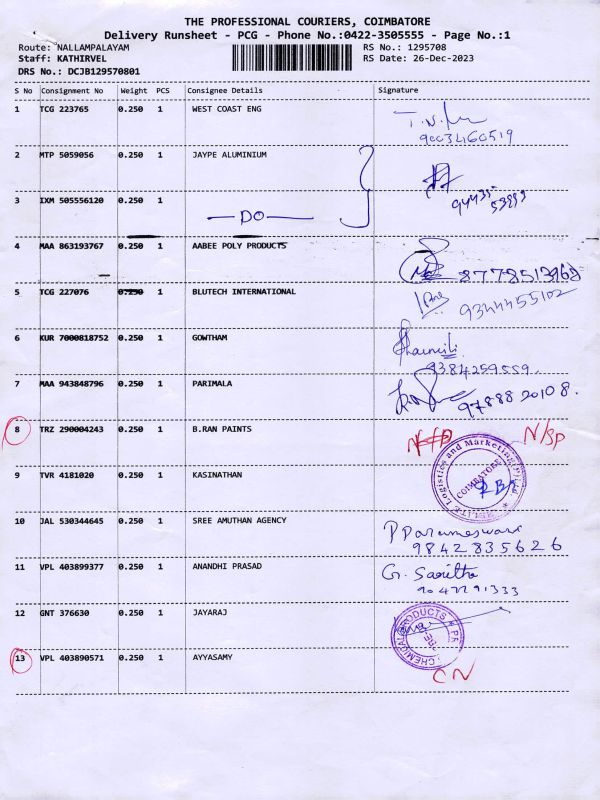 THE PROFESSIONAL COURIERS, COIMBATORE
Delivery Runsheet - PCG - Phone No.:0422-3505555 - Page No.:1
Route: NALLAMPALAYAM RS No.: 1295708
Staff: KATHIRVEL RS Date: 26-Dec-2023
DRS No.: DCJB129570801
S No Consignment No Weight PCS Consignee Details Signature
1 TCG 223765 0.250 1 WEST COAST ENG
9003460519
2 MTP 5059056 0.250 1 JAYPE ALUMINIUM
3 IXM 505556120 0.250 1
DO
4 MAA 863193767 0.250 1 AABEE POLY PRODUCTS
8778513968
5 TCG 227076 0.250 1 BLUTECH INTERNATIONAL
9344455102
6 KUR 7000818752 0.250 1 GOWTHAM
9384259559.
7 MAA 943848796 0.250 1 PARIMALA
97888 20108.
8 TRZ 290004243 0.250 1 B.RAN PAINTS N/SP
Logistics and Marketing
COIMBATORE
9 TVR 4181020 0.250 1 KASINATHAN
10 JAL 530344645 0.250 1 SREE AMUTHAN AGENCY
P Parameswari
9842835626
11 VPL 403899377 0.250 1 ANANDHI PRASAD
G. Saritha
9047791333
12 GNT 376630 0.250 1 JAYARAJ
CHEMICAL PRODUCTS
13 VPL 403890571 0.250 1 AYYASAMY
CN